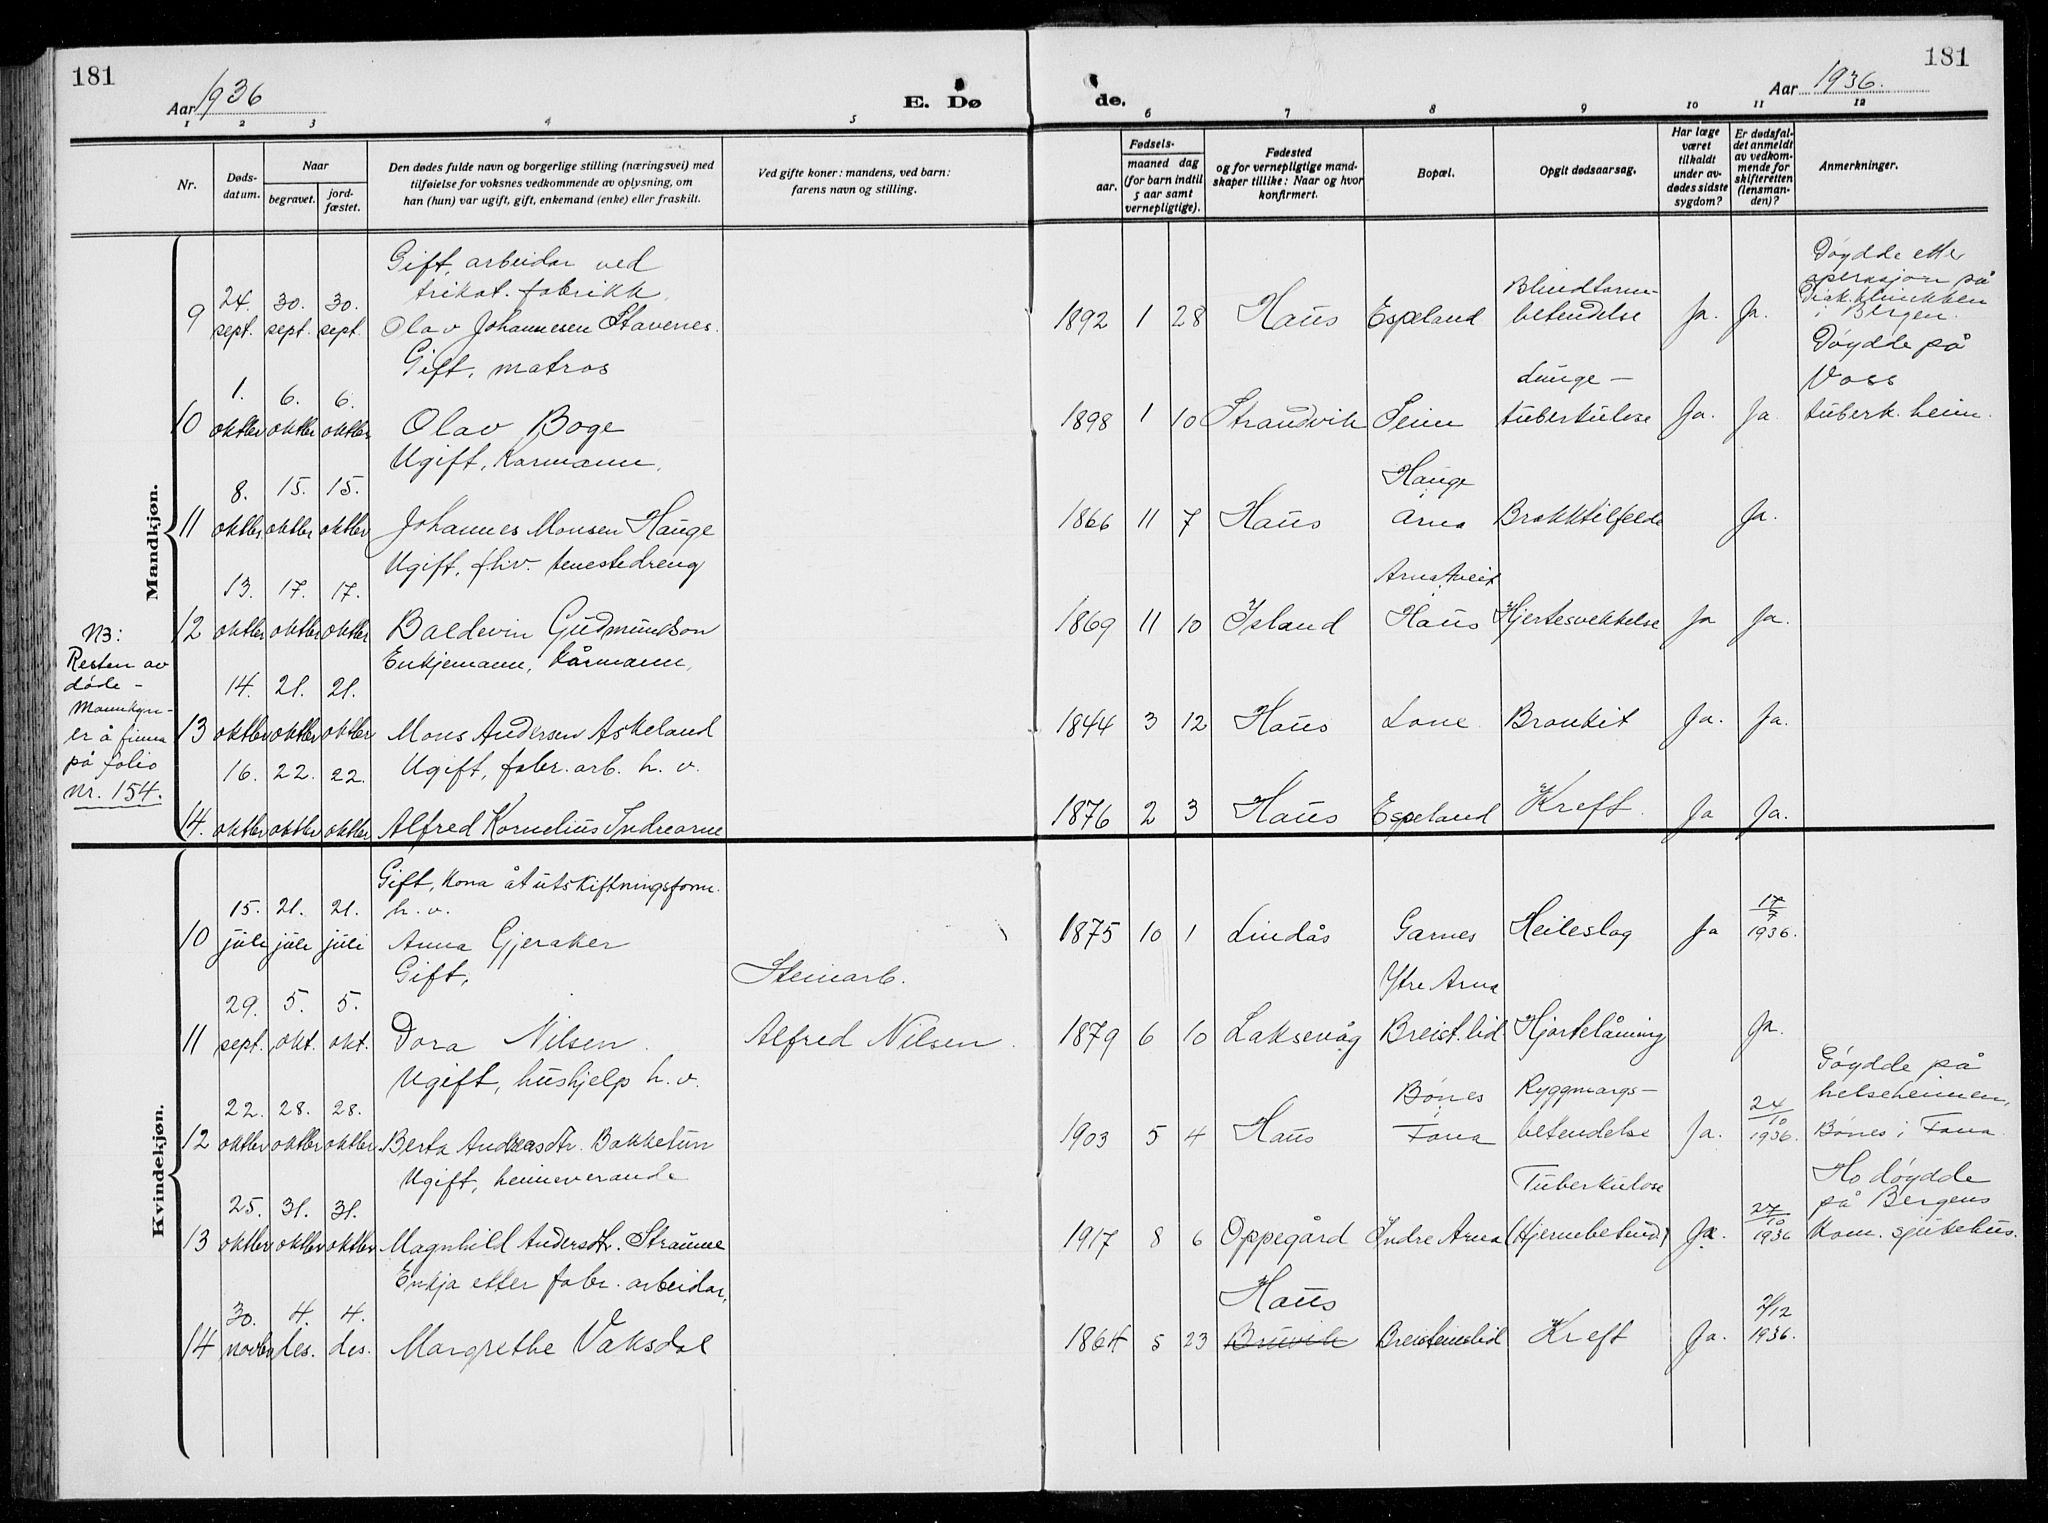 181
Aar 1936
E. Dø
de.
Aar 1936.
181
1 2 3 4 5 6 7 8 9 10 11 12
Nr.
Døds-
datum.
Naar
begravet.
jord-
fæstet.
Den dødes fulde navn og borgerlige stilling (næringsvei) med
tilføielse for voksnes vedkommende av oplysning, om
han (hun) var ugift, gift, enkemand (enke) eller fraskilt.
Ved gifte koner: mandens, ved barn:
farens navn og stilling.
Fødsels-
aar.
maaned dag
(for barn indtil
5 aar samt
vernepligtige).
Fødested
og for vernepligtige mand-
skaper tillike: Naar og hvor
konfirmert.
Bopæl.
Opgit dødsaarsag.
Har læge
været
tilkaldt
under av-
dødes sidste
sygdom?
Er dødsfal-
det anmeldt
av vedkom-
mende for
skifteretten
(lensman-
den)?
Anmerkninger.
Mandkjøn.
NB:
Resten av
døde -
Mannkyn -
er å finna
på folio
nr. 154.
Gift, arbeidar ved
trikot. fabrikk,
9 24. sept. 30. sept. 30. sept. Olav Johannesen Stavenes. 1892 1 28 Haus Espeland Blindtarm-
betendelse Ja. Ja. Døydde etter
operasjon på
Diak. klinikken
i Bergen.
Gift, matros
10 1. oktbr 6. oktbr 6. oktbr Olav Boge 1898 1 10 Strandvik Seim Lunge-
tuberkulose Ja. Ja Døydde på
Voss
tuberk. heim.
Ugift, Karmann,
11 8. oktbr 15. oktbr 15. oktbr Johannes Monsen Hauge 1866 11 7 Haus Hauge
Arna Brokktilfelde Ja.
Ugift, fhv. tenestedreng
12 13. oktbr 17. oktbr 17. oktbr Baldevin Gudmundson 1869 11 10 Island Arnatveit
Haus Hjertesvekkelse Ja Ja.
Enkjemann, kårmann,
13 14. oktbr 21. oktbr 21. oktbr Mons Andersen Askeland 1844 3 12 Haus Lone. Bronkit Ja. Ja.
Ugift, fabr. arb. h. v.
14. 16. oktbr 22. oktbr 22. oktbr Alfred Kornelius Indrearne 1876 2 3 Haus Espeland Kreft. Ja Ja.
Kvindekjøn.
Gift, kona åt utskiftningsform.
h. v.
10 15. juli 21. juli 21. juli Anna Gjeraker 1875 10 1 Lindås Garnes Heileslag Ja 17/7
1936.
Gift, Steinarb.
11 29. sept. 5. okt. 5. okt. Dora Nilsen. Alfred Nilsen. 1879 6 10 Laksevåg Ytre Arna
Breist. lid Hjartelåming Ja.
Ugift, hushjelp h. v.
12 22. oktbr 28. oktbr 28. oktbr. Berta Andreasdtr. Bakketun 1903 5 4 Haus Bønes
i Fana Ryggmargs-
betendelse Ja. 24/10
1936. Døydde på
helseheimen,
Bønes i Fana
Ugift, heimeverande
13 25. oktbr 31. oktbr 31. oktbr Magnhild Andersdtr. Straume 1917 8 6 Oppegård Indre Arna Tuberkulose
(Hjernebetend.) Ja. 27/10
1936 Ho døydde
på Bergens
Kom. sjukehus.
Enkja etter fabr. arbeidar,
14 30. novbr 4. des. 4. des. Margrethe Vaksdal 1864 5 23 Haus
Bruvik Breisteinslid Kreft Ja. 2/12
1936.